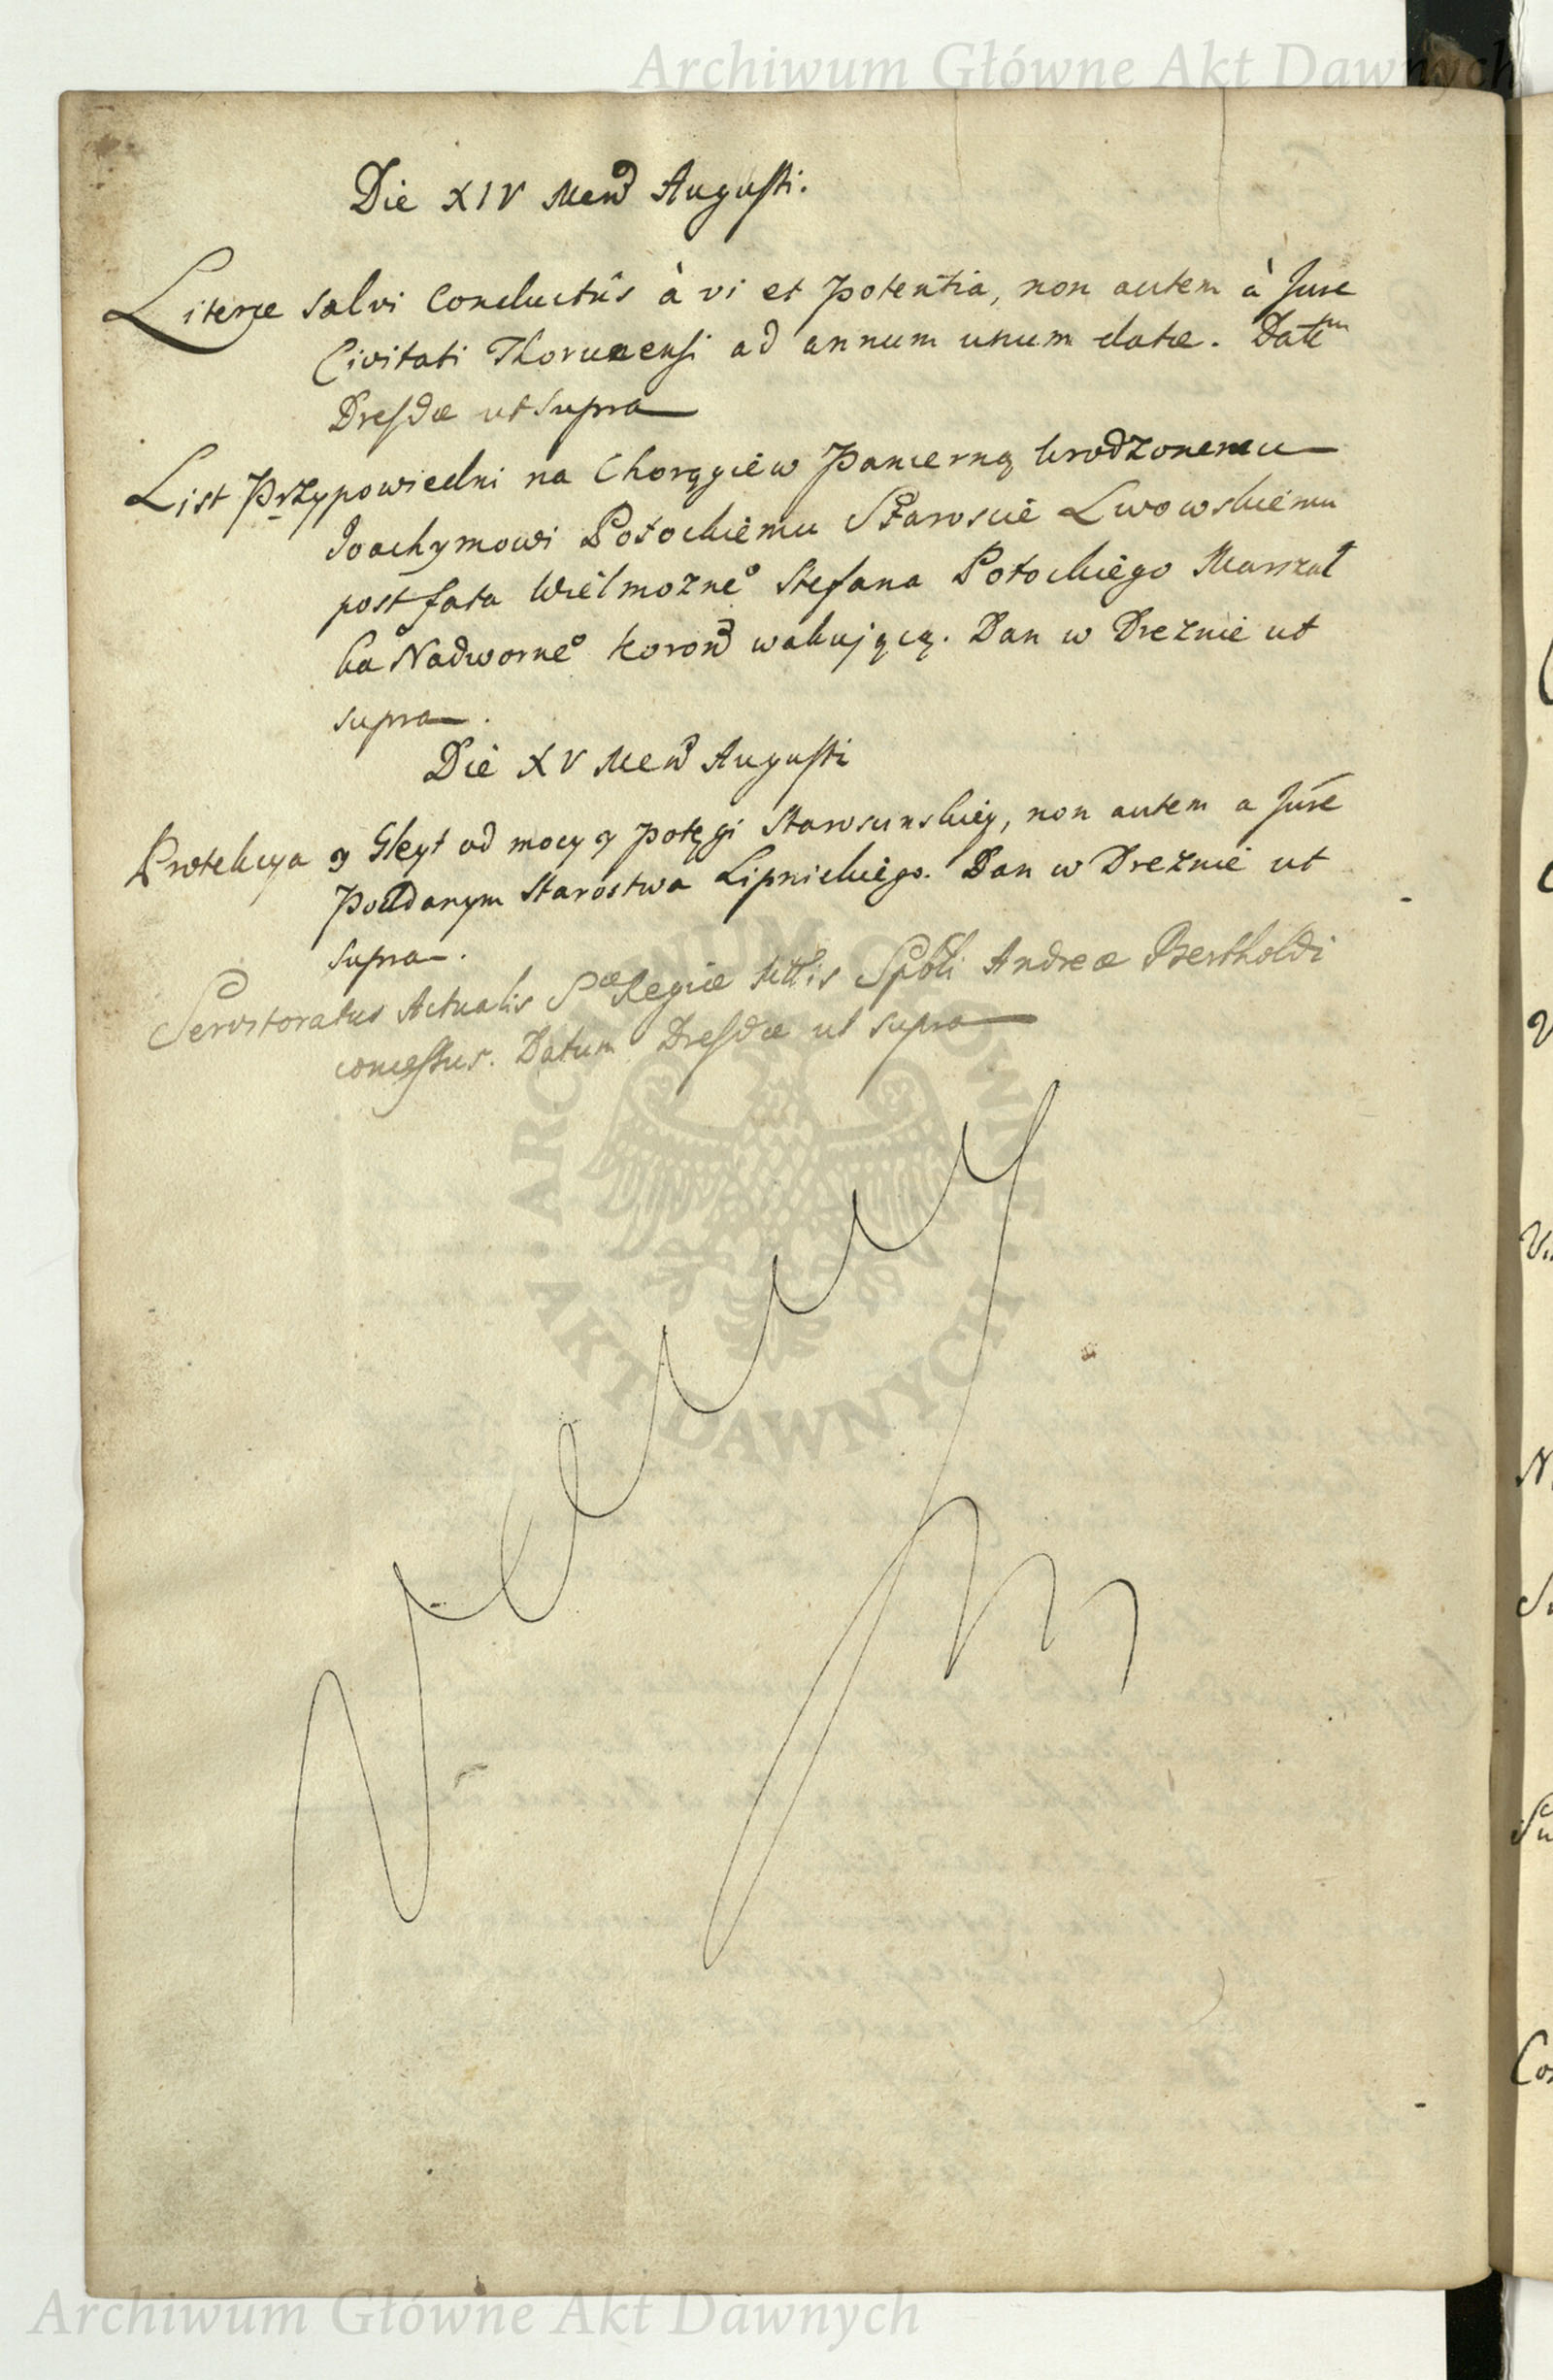 Archiwum Główne Akt Dawnych
Die XIV Mens Augusti.
Literæ Salvi Conductûs à vi et potentia, non autem à Jure
Civitati Thoruensi ad annum unum datæ. Datm
Dresdæ ut supra
List Przypowiedni na Chorągiew Pancerną Urodzonemu
Joachymowi Potockiemu Staroscie Lwowskiemu
post fata Wielmożneo Stefana Potockiego Marszał
ka Nadworneo Koron wakującą. Dan w Dreznie ut
supra.
Die XV Mens Augusti
Protekcya y Gleyt od mocy y potęgi Starościnskiey, non autem a Jure
Poddanym Starostwa Lipnickiego. Dan w Dreznie ut
supra.
Servitoratus Actualis Sæ Regiæ Mttis Spbli Andreæ Bertholdi
concessus. Datum Dresdæ ut supra
ARCHIWUM GŁÓWNE
AKT DAWNYCH
Archiwum Główne Akt Dawnych